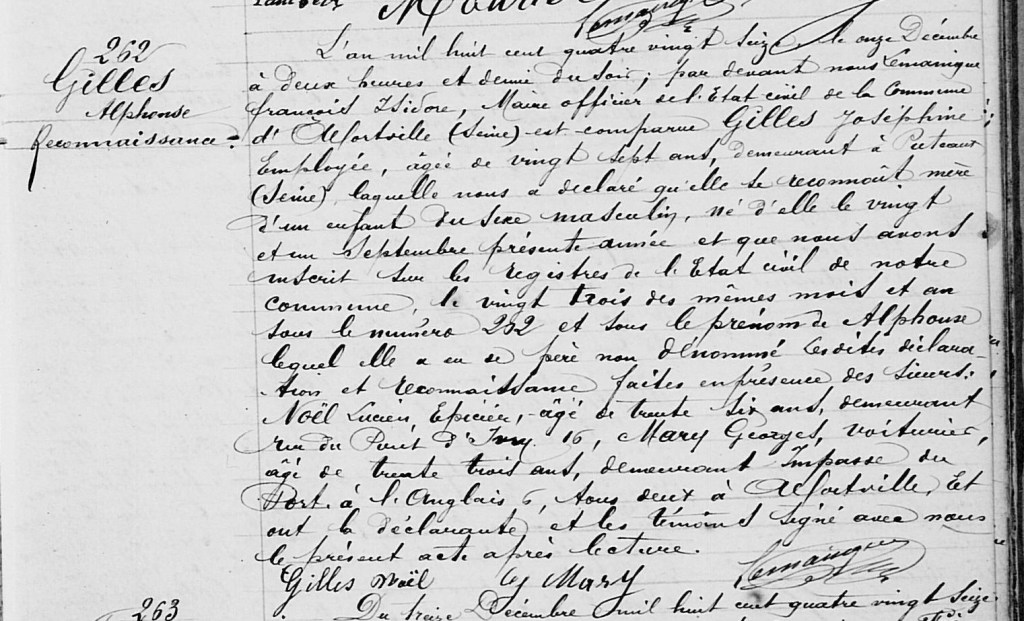 262
Gilles
Alphonse
Reconnaissance.
L'an mil huit cent quatre vingt seize, le onze Décembre
à deux heures et demie du soir; par devant nous Lemainque
françois Isidore, Maire officier de l'Etat civil de la Commune
d'Alfortville (Seine) est comparue GILLES Joséphine
Employée, âgée de vingt sept ans, demeurant à Puteaux
(Seine), laquelle nous a déclaré qu'elle se reconnaît mère
d'un enfant du sexe masculin, né d'elle le vingt
et un Septembre présente année et que nous avons
inscrit sur les registres de l'Etat civil de notre
commune, le vingt trois des mêmes mois et an
sous le numéro 232 et sous le prénom de Alphonse
lequel elle a eu de père non dénommé Lesdites déclara-
tion et reconnaissance faites en présence des sieurs:
Noël Lucien, Epicier, âgé de trente six ans, demeurant
rue du Pont d'Ivry 16, Mary Georges, voiturier,
âgé de trente trois ans, demeurant Impasse du
Port à l'Anglais 6, tous deux à Alfortville, Et
ont la déclarante et les témoins signé avec nous
le présent acte après lecture.
Gilles Noël Mary Lemainque
263
Du treize Décembre mil huit cent quatre vingt seize